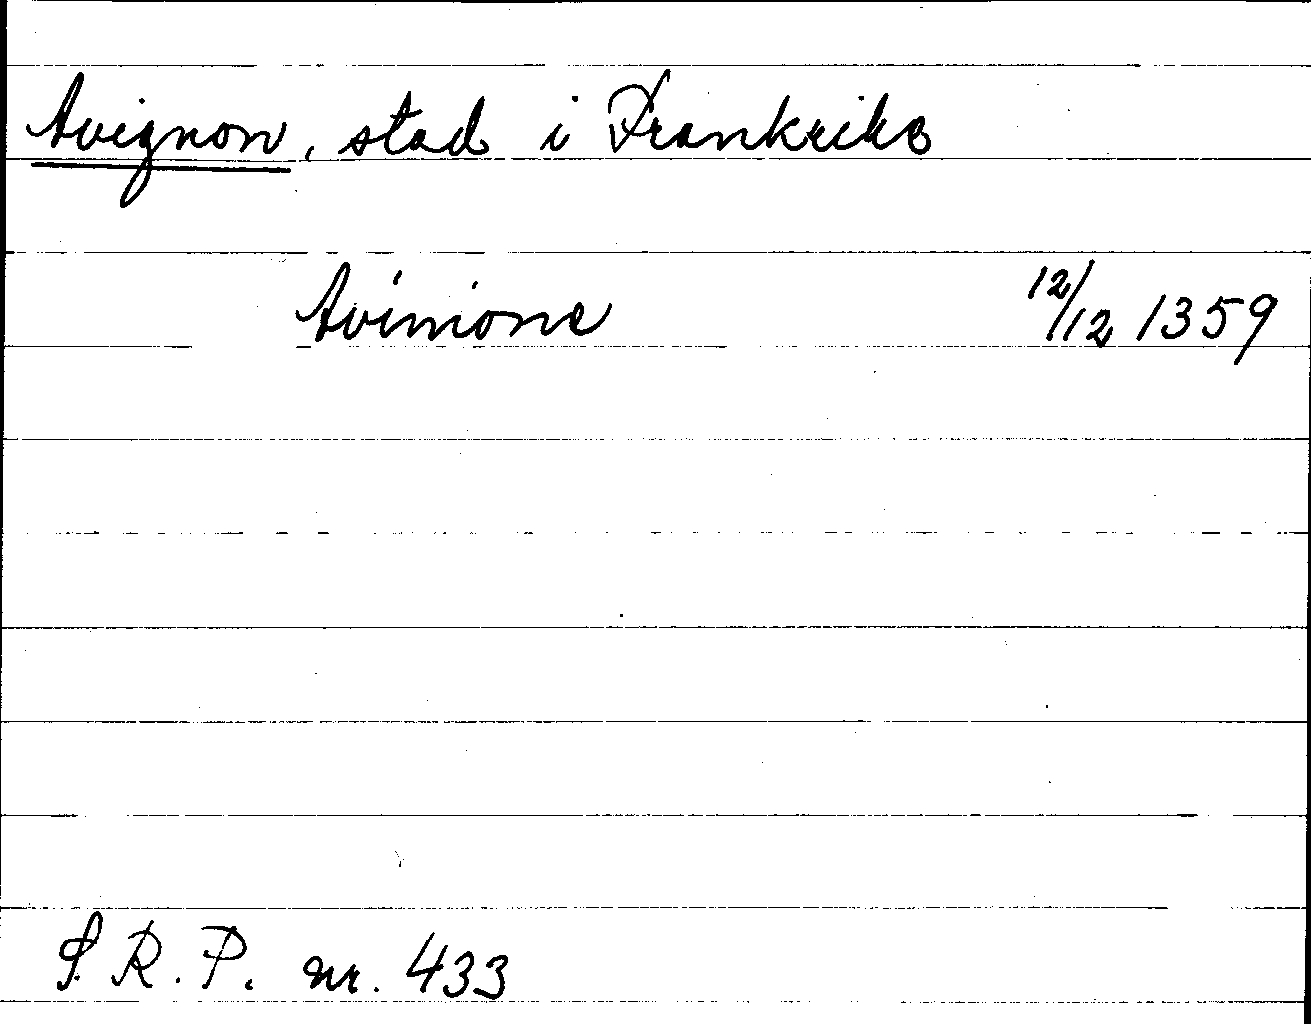 Avignon, stad i Frankrike
Avinione 12/12 1359
S.R.P. nr. 433